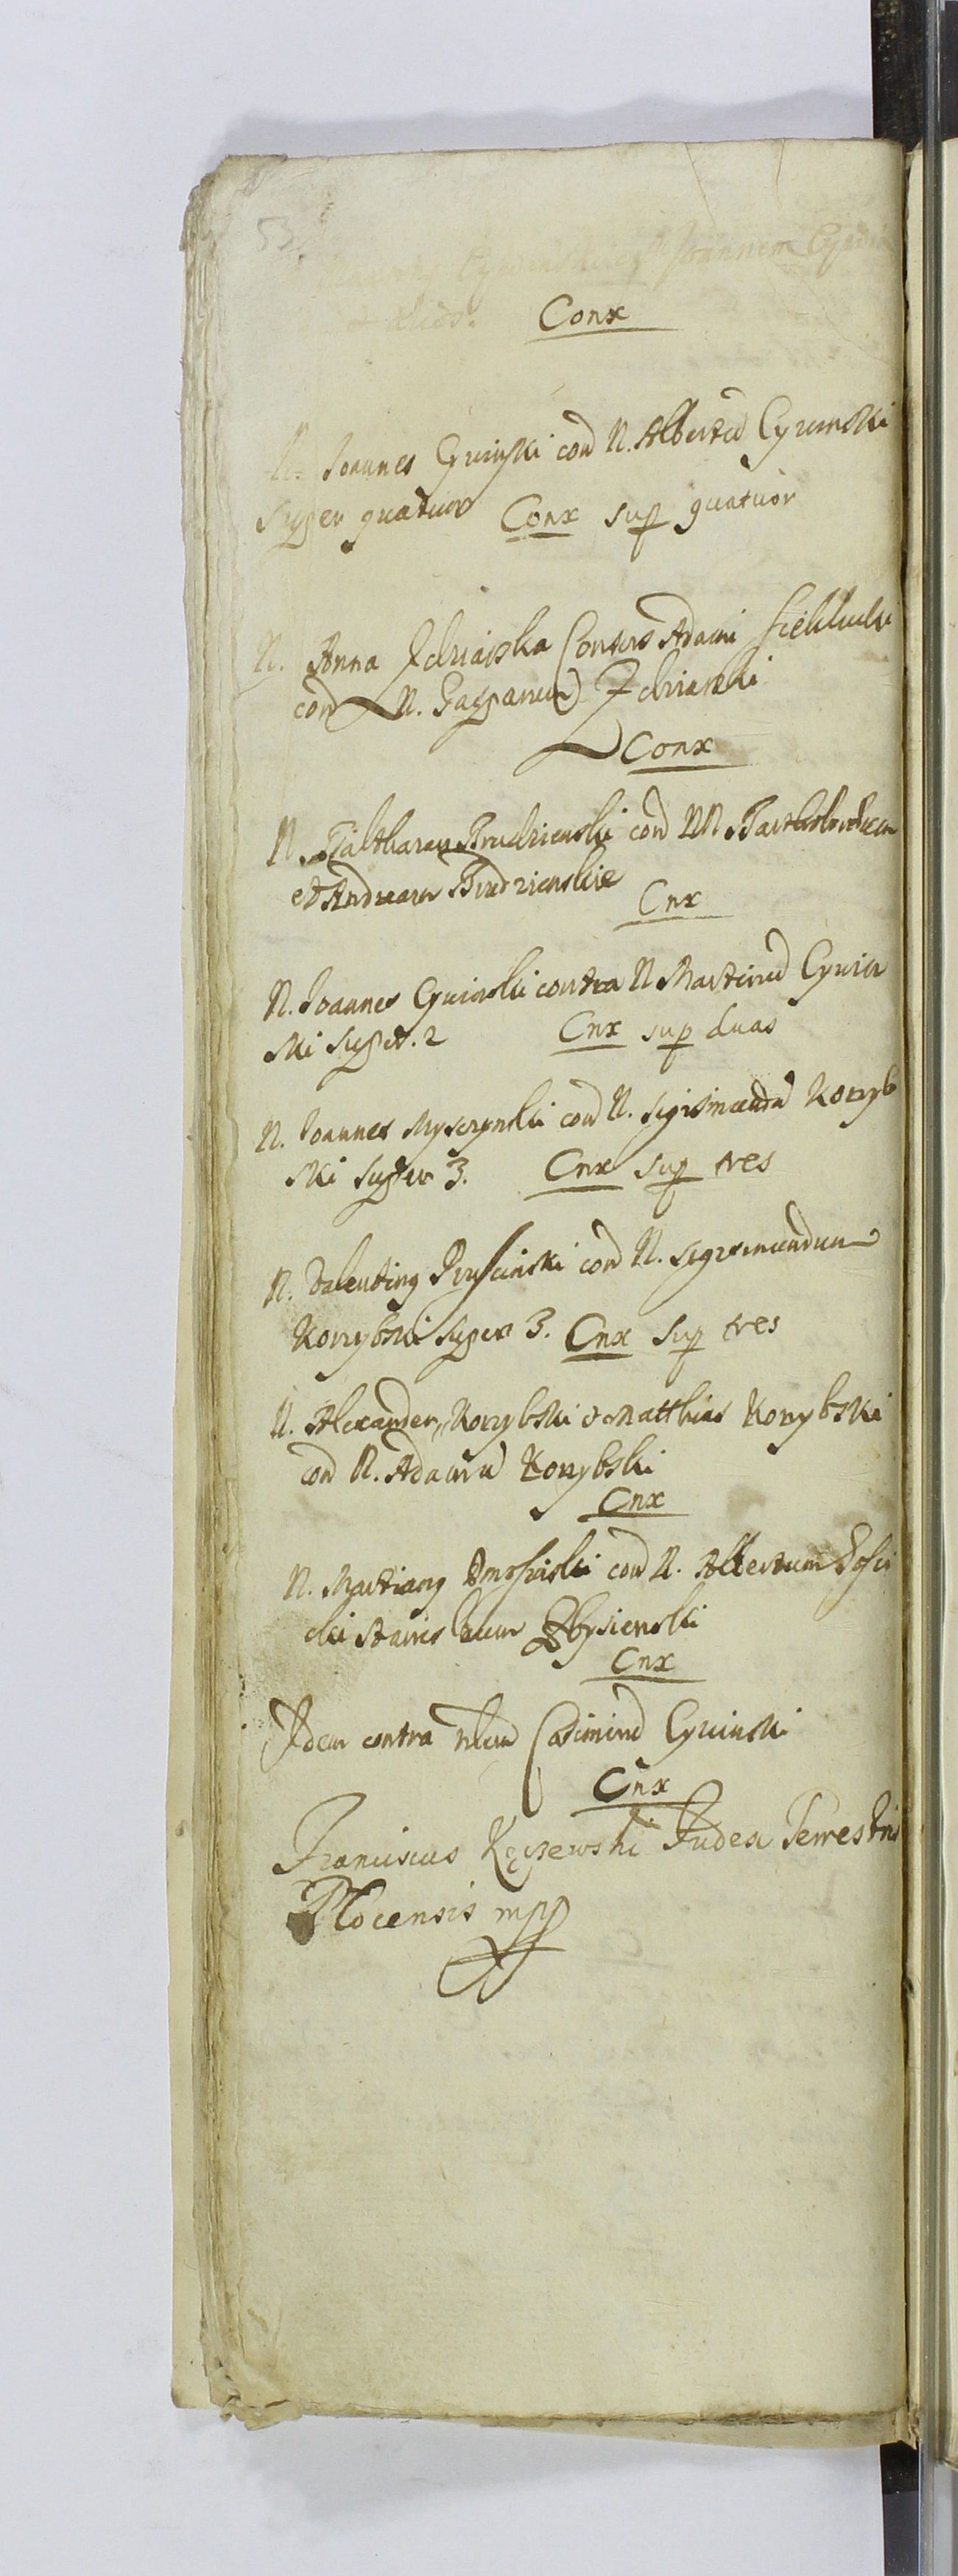 53
Joannem
Conx
N. Joannes Cywinski con N. Albertu Cywinski
super quatuor Conx sup quatuor
N. Anna Zdriarska Consors Adami
con N. Gasparum Zdriarski
Conx
N. Balthazar Brudzienski con NN Bartholomeum
et Andream Brudzienskie
Cnx
N. Joannes Cywinski contra N Martinu Cywin
ski super. 2 Cnx sup duas
N. Joannes Myszynski con N. Sigismundu Korzyb
ski super 3. Cnx sup tres
N. Valentinq con N. Sigismundum
Korzybski super 3. Cnx sup tres
N. Alexander Korzybski et Matthias Korzybski
con N. Adamu Korzybski
Cnx
N. Martianq con N. Albertum
Cnx
Idem contra Casimiru Cywinski
Cnx
Franciscus Judex Terrestris
Plocensis mpp